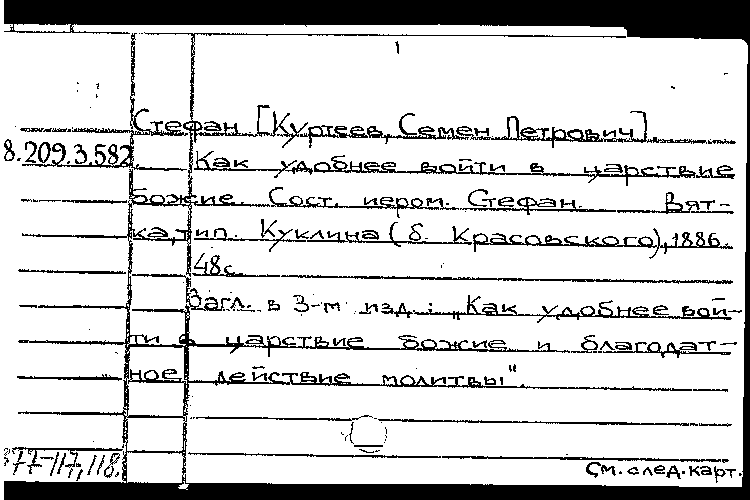 Стефан [Куртеев, Семен Петрович].
8.209.3.582. Как удобнее войти в царствие
божие. Сост. иером. Стефан. Вят-
ка, тип. Куклина (б. Красовского), 1886.
48с.
Загл. в 3-м изд.: „Как удобнее вой-
ти в царствие божие и благодат-
ное действие молитвы".
77-117,118.
См. след. карт.